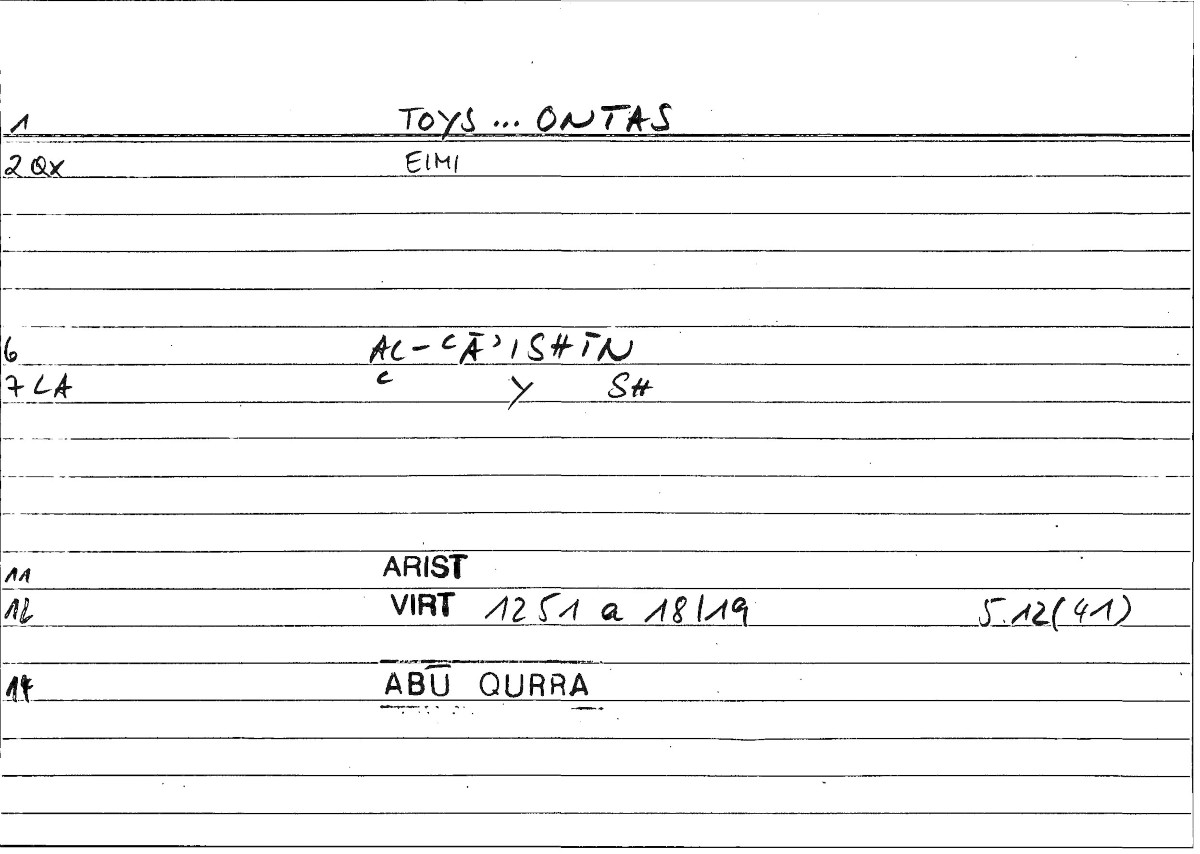 1 TOYS ... ONTAS
2 QX EIMI
6 AL-ʿĀʾISHĪN
7 LA ʿ Y SH
11 ARIST
12 VIRT 1251 a 18/19 5.12(41)
14 ABŪ QURRA